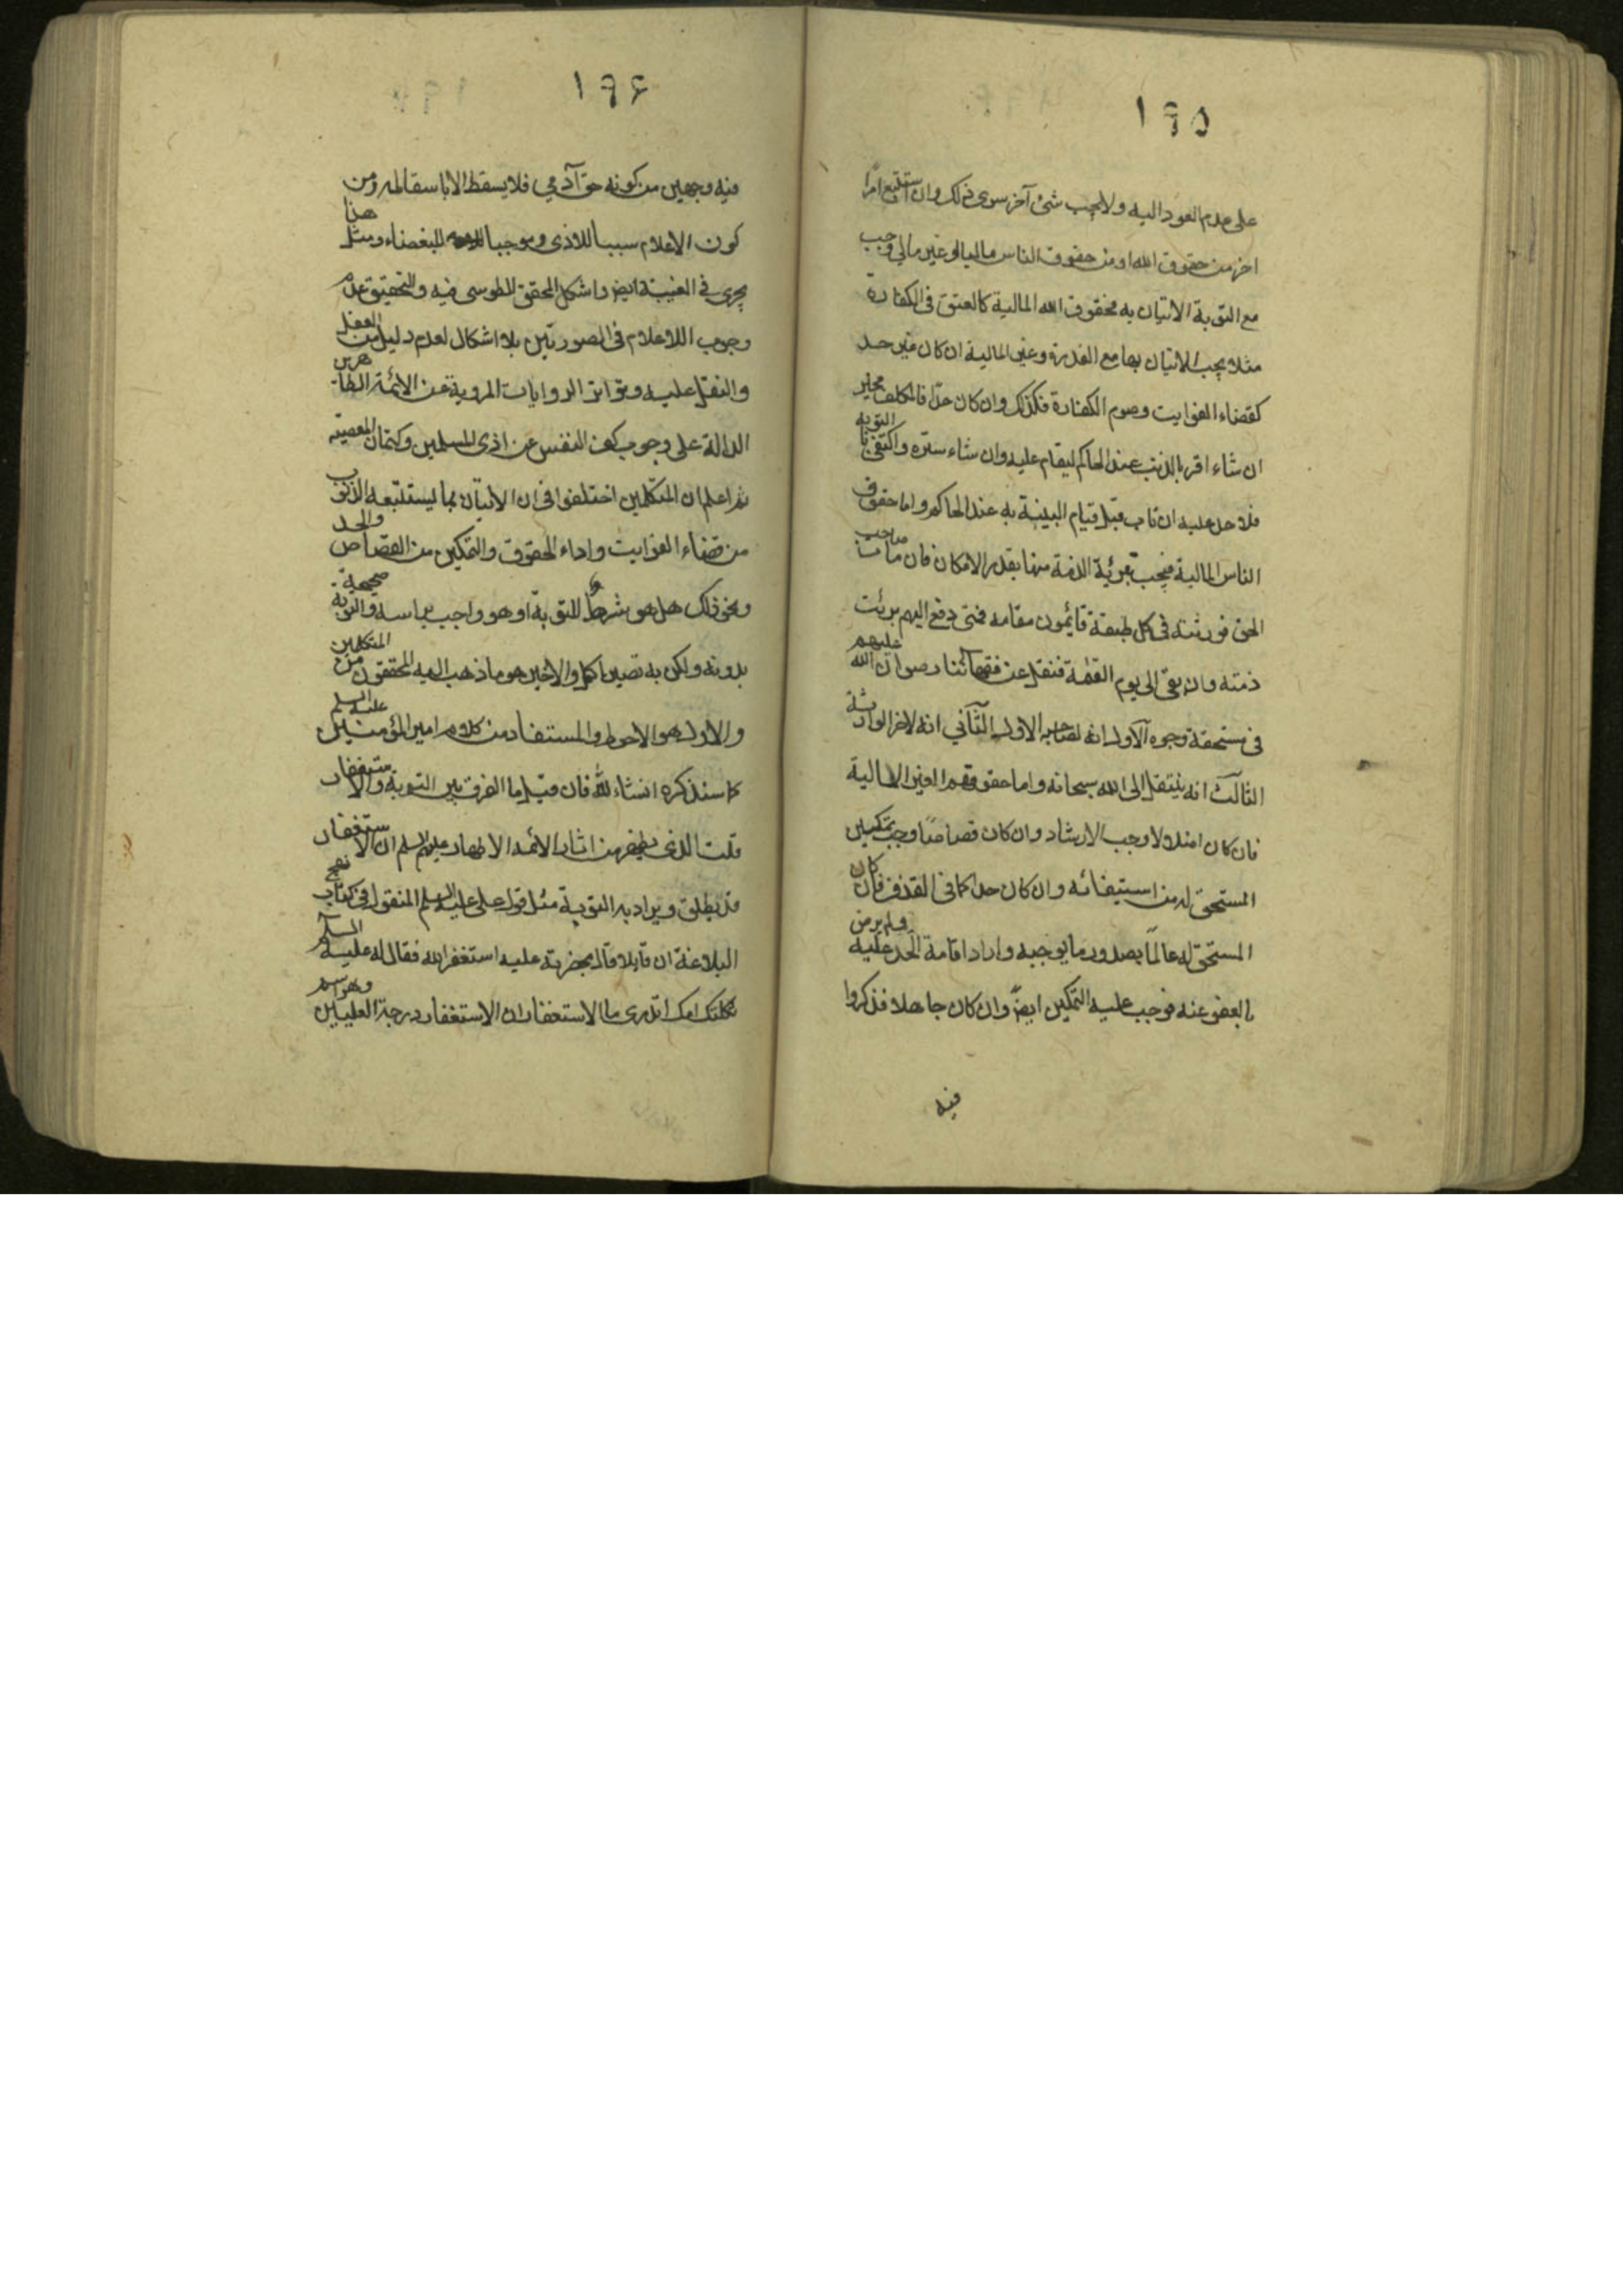 ١٩٥
على عدم العود اليه ولا يجب شئ آخر سوى ذلك وان استتبع امرًا
آخر من حقوق الله او من حقوق الناس ماليا او غير مالي وجب
مع التوبة الاتيان به فحقوق الله المالية كالعتق فى الكفارة
مثلا يجب الاتيان بها مع القدرة وغير المالية ان كان غير حد
كقضاء الفوايت وصوم الكفارة فكذلك وان كان حدّا فالمكلف مخير
ان شاء اقر بالذنب عند الحاكم ليقام عليه وان شاء ستره واكتفى بالتوبه
فلا حد عليه ان تاب قبل قيام البينة به عند الحاكم واما حقوق
الناس المالية فيجب تبرئة الذمة منها بقدر الامكان فان مات صاحب
الحق فورثته فى كل طبقة قائمون مقامه فمتى دفع اليهم برئت
ذمته وان بقى الى يوم القيمة فنقل عن فقهائنا رضوان الله عليهم
فى مستحقه وجوه الآول انه لصاحبه الاول الثّانى انه لاخر الوارثة
الثالث انه ينتقل الى الله سبحانه واما حقوقهم الغير المالية
فان كان اضلالا وجب الارشاد وان كان قصاصًا وجب تمكين
المستحق له من استيفائه وان كان حدا كما فى القذف فان كان
المستحق له عالمًا بصدور ما يوجبه واراد اقامة الحد عليه ولم يرض
بالعفو عنه فوجب عليه التمكين ايضً وان كان جاهلا فذكروا
فيه
١٩۶
فيه وجهين من كونه حق آدمي فلا يسقط الا باسقاطه ومن
كون الاعلام سببا للاذى وموجبا للبغضاء ومثل هذا
يجرى في الغيبة ايضً واشكل المحقق الطوسى فيه والتحقيق عدم
وجوب الاعلام فى الصورتين بلا اشكال لعدم دليل من العقل
والنقل عليه وتواتر الروايات المروية عن الائمة الطاهرين
الدالة على وجوب كف النفس عن اذى المسلمين وكتمان المعصية
ثم اعلم ان المتكلمين اختلفوا فى ان الاتيان بما يستتبعه الذنوب
من قضاء الفوايت واداء الحقوق والتمكين من القصاص والحد
ونحو ذلك هل هو شرط للتوبة او هو واجب براسه والتوبة صحيحة
بدونه ولكن به تصير اكمل والاخير هو ما ذهب اليه المحققون من المتكلمين
والاول هو الاحوط والمستفاد من كلام امير المؤمنين عليه السلم
كما سنذكره انشاء لله فان قيل ما الفرق بين التوبة والاستغفار
قلت الذى يظهر من اثار الائمه الاطهار عليهم السلم ان الاستغفار
قد يطلق ويراد به التوبة مثل قول على عليه السلم المنقول فى كتاب نهج
البلاغة ان قايلا قال بحضرته عليه استغفر الله فقال له عليه السلم
ثكلتك امك اتدرى ما الاستغفار ان الاستغفار درجة العليين وهو اسم